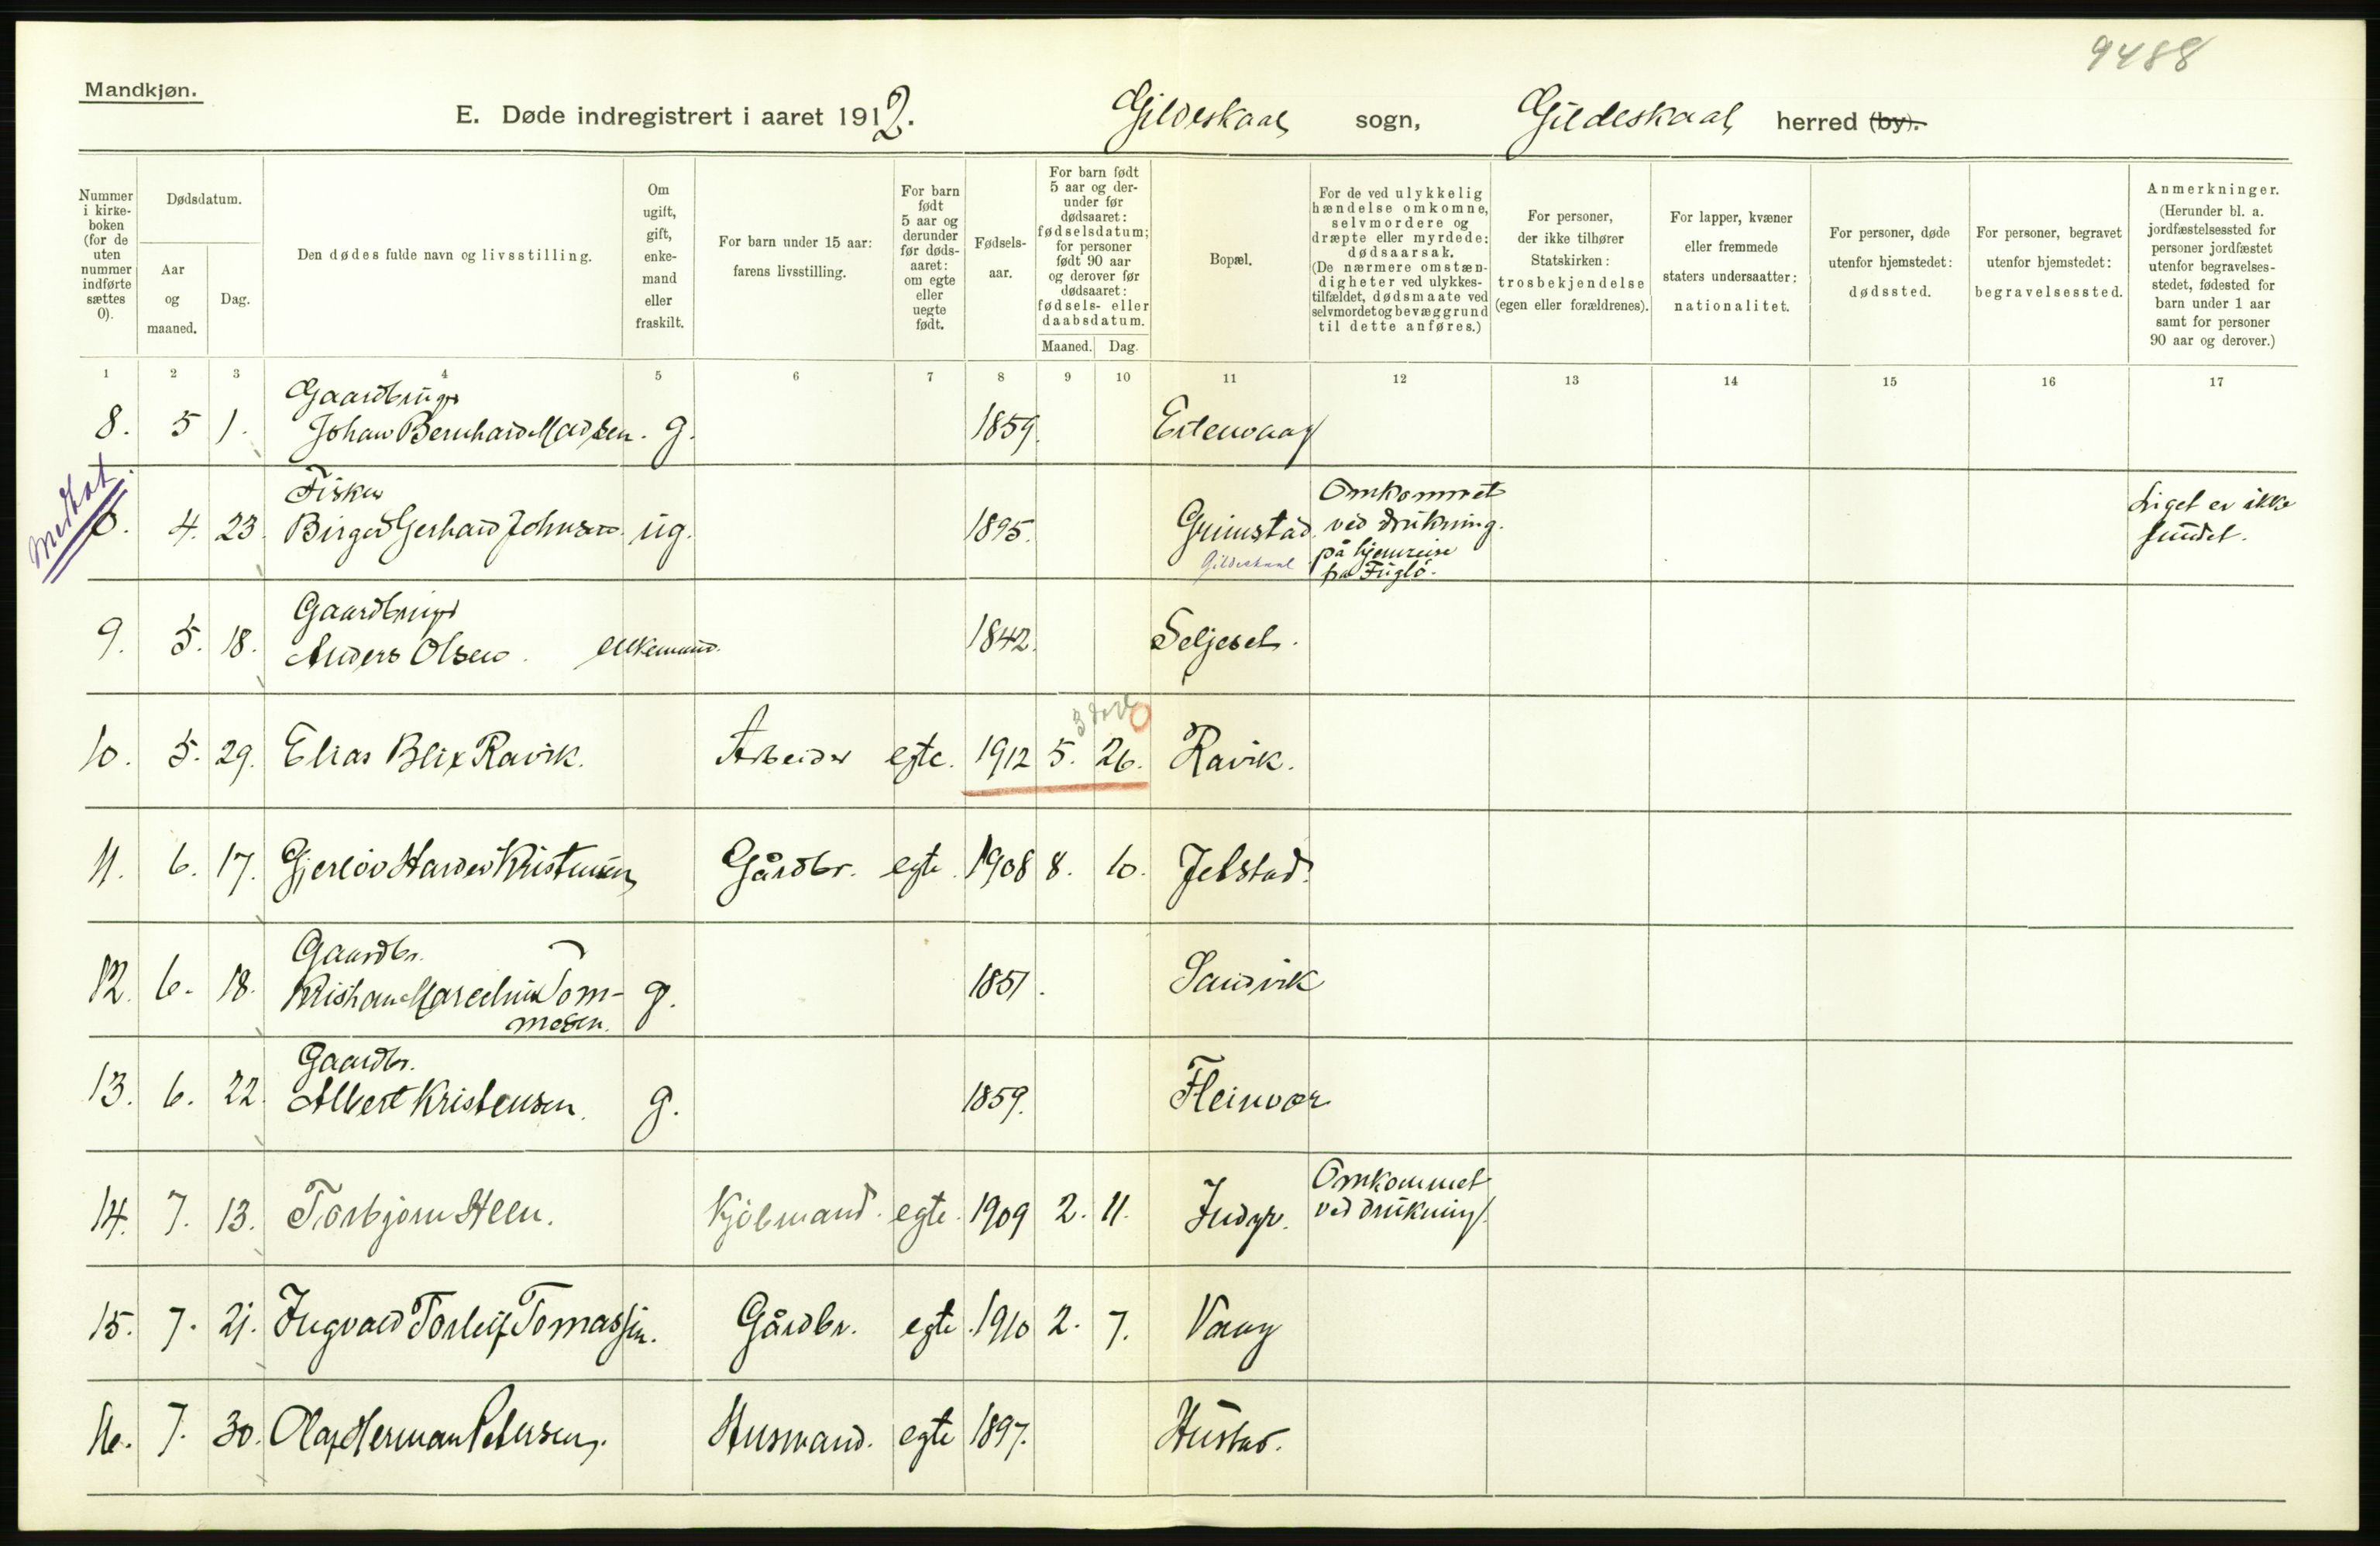 9488
Mandkjøn.
E. Døde indregistrert i aaret 1912. Gildeskaal sogn, Gildeskaal herred (by).
Nummer i kirke-boken (for de uten nummer indførte sættes 0).
Dødsdatum.
Aar og maaned.
Dag.
Den dødes fulde navn og livsstilling.
Om ugift, gift, enke-mand eller fraskilt.
For barn under 15 aar: farens livsstilling.
For barn født 5 aar og derunder før døds-aaret: om egte eller uegte født.
Fødsels-aar.
For barn født 5 aar og der-under før dødsaaret: fødselsdatum; for personer født 90 aar og derover før dødsaaret: fødsels- eller daabsdatum.
Maaned. Dag.
Bopæl.
For de ved ulykkelig hændelse omkomne, selvmordere og dræpte eller myrdede: dødsaarsak. (De nærmere omstæn-digheter ved ulykkes-tilfældet, dødsmaate ved selvmordet og bevæggrund til dette anføres.)
For personer, der ikke tilhører Statskirken: trosbekjendelse (egen eller forældrenes).
For lapper, kvæner eller fremmede staters undersaatter: nationalitet.
For personer, døde utenfor hjemstedet: dødssted.
For personer, begravet utenfor hjemstedet: begravelsessted.
Anmerkninger. (Herunder bl. a. jordfæstelsessted for personer jordfæstet utenfor begravelses-stedet, fødested for barn under 1 aar samt for personer 90 aar og derover.)
1 2 3 4 5 6 7 8 9 10 11 12 13 14 15 16 17
Gaardbruger
8. 5 1. Johan Bernhard Madsen. g. 1859.
Medtat.
Fisker Omkommet
0. 4. 23. Birger Gerhard Johnsen. ug. 1895. Grimstad. ved drukning. Liget er ikke
Gildeskaal på hjemreise fundet.
fra Fuglö.
Gaardbruger
9. 5. 18. Anders Olsen. Enkemand. 1842. Seljeset.
3 dage 0
10. 5. 29. Elias Blix Ravik. Arbeider egte. 1912 5. 26. Ravik.
11. 6. 17. Kristensen Gårdbr. egte. 1908 8. 10. Jelstad.
Gaardbr.
12. 6. 18. Kristian Marcelius Tom- g. 1851. Sandvik
mesen.
Gaardbr.
13. 6. 22. Albert Kristensen. g. 1859. Fleinvær
Omkommet
14. 7. 13. Torbjørn Steen. Kjöbmand. egte. 1909 2. 11. Indyr. ved drukning.
15. 7. 21. Ingvald Torleif Tomassen. Gårdbr. egte. 1910 2. 7. Vaag
16. 7. 30. Olaf Herman Petersen. Husmand. egte 1897. Hustad.